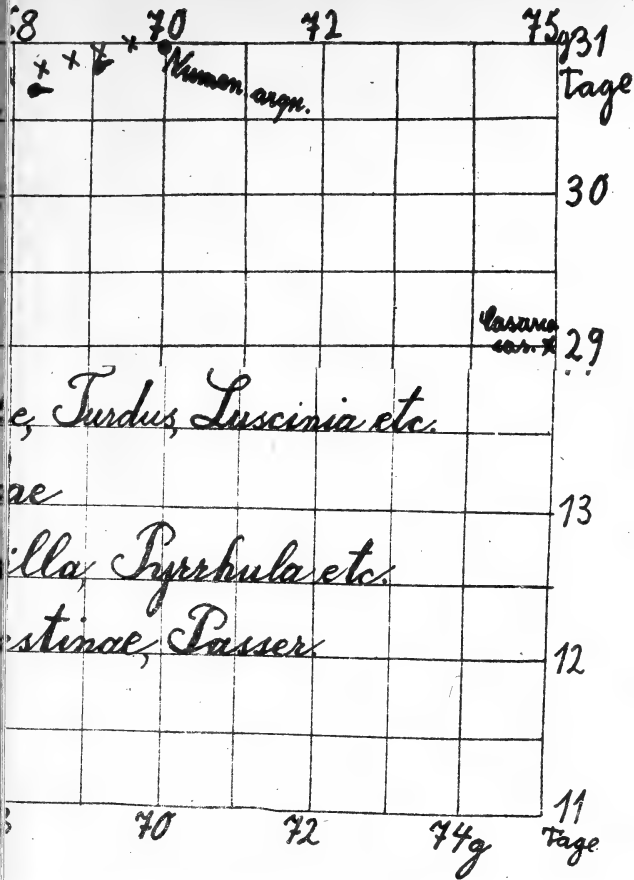 68 70 72 75g 31
Tage
Numen arqu.
30
Casarca
cas. x 29
e, Turdus, Luscinia etc.
ae
13
illa, Pyrrhula etc.
estinae, Passer.
12
11
70 72 74g Tage